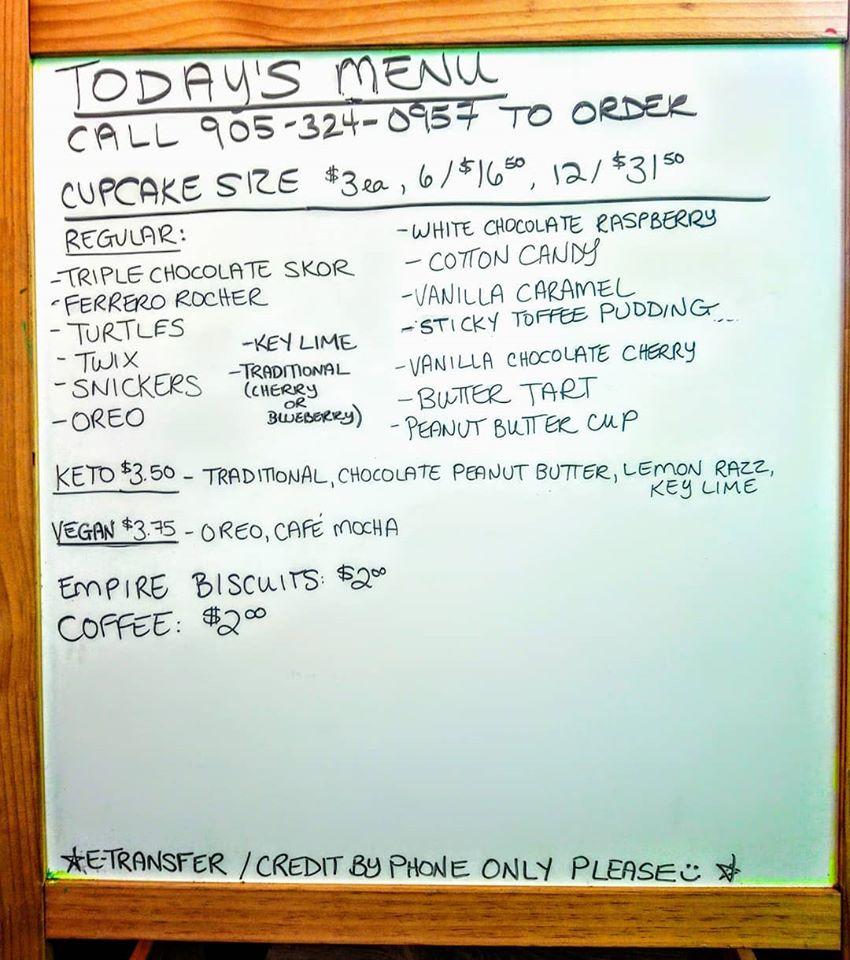 TODAY'S MENU
CALL 905-324-0957 TO ORDER
CUPCAKE SIZE $3ea, 6/$16.50, 12/$31.50
REGULAR:
-TRIPLE CHOCOLATE SKOR
-FERRERO ROCHER
-TURTLES
-TWIX
-SNICKERS
-OREO
-KEY LIME
-TRADITIONAL
(CHERRY
OR
BLUEBERRY)
-WHITE CHOCOLATE RASPBERRY
-COTTON CANDY
-VANILLA CARAMEL
-STICKY TOFFEE PUDDING...
-VANILLA CHOCOLATE CHERRY
-BUTTER TART
-PEANUT BUTTER CUP
KETO $3.50 - TRADITIONAL, CHOCOLATE PEANUT BUTTER, LEMON RAZZ,
KEY LIME
VEGAN $3.75 - OREO, CAFÉ MOCHA
EMPIRE BISCUITS: $2.00
COFFEE: $2.00
☆E-TRANSFER / CREDIT BY PHONE ONLY PLEASE☺ ☆